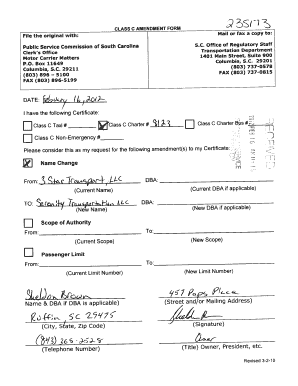 235173
CLASS C AMENDMENT FORM
File the original with:
Mail or fax a copy to:
Public Service Commission of South Carolina
Clerk's Office
Motor Carrier Matters
P.O. Box 11649
Columbia, S.C. 29211
(803) 896 – 5100
FAX (803) 896-5199
S.C. Office of Regulatory Staff
Transportation Department
1401 Main Street, Suite 900
Columbia, S.C. 29201
(803) 737-0578
FAX (803) 737-0815
DATE: February 16, 2012
I have the following Certificate:
Class C Taxi # Class C Charter # 8123 Class C Charter Bus #
Class C Non-Emergency #
Please consider this as my request for the following amendment(s) to my Certificate:
Name Change
From: 3 Star Transport, LLC DBA:
(Current Name) (Current DBA if applicable)
TO: Serenity Transportation LLC DBA:
(New Name) (New DBA if applicable)
Scope of Authority
From: To:
(Current Scope) (New Scope)
Passenger Limit
From: To:
(Current Limit Number) (New Limit Number)
Sheldon Brown 457 Paps Place
Name & DBA if DBA is applicable) (Street and/or Mailing Address)
Ruffin, SC 29475
(City, State, Zip Code) (Signature)
(843) 365-2528 Owner
(Telephone Number) (Title) Owner, President, etc.
Revised 3-2-10